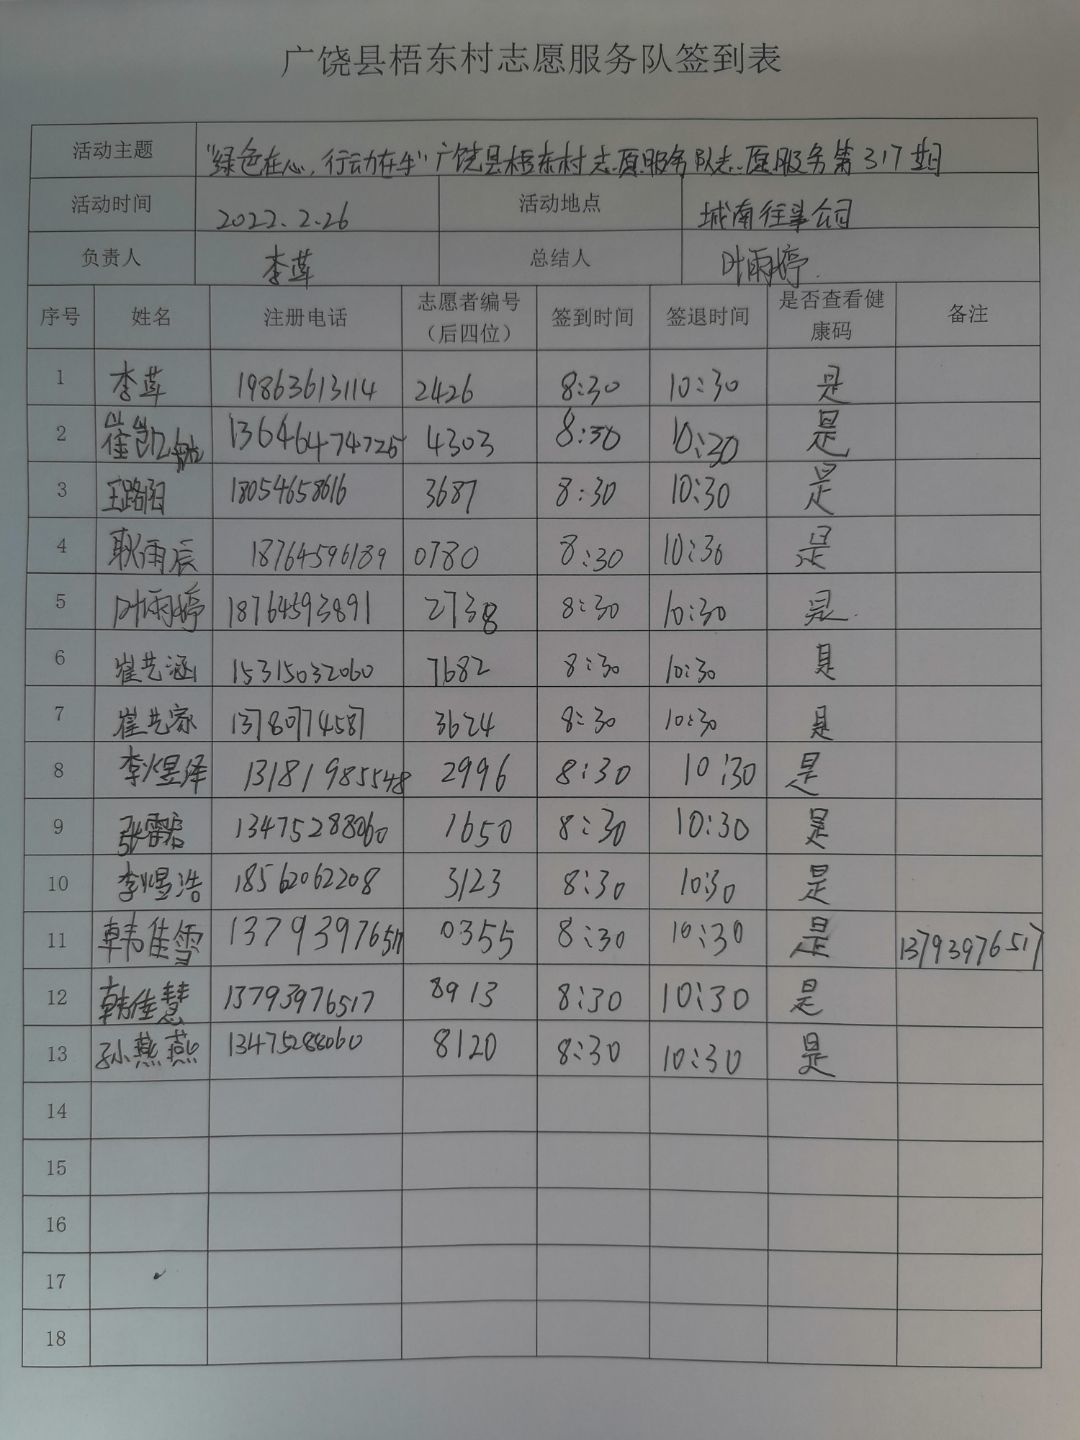 广饶县梧东村志愿服务队签到表
活动主题 “绿色在心，行动在手”广饶县梧东村志愿服务队志愿服务第317期
活动时间 2022.2.26 活动地点 城南往事公园
负责人 李莲 总结人 叶雨婷
序号 姓名 注册电话 志愿者编号（后四位） 签到时间 签退时间 是否查看健康码 备注
1 李莲 19863613114 2426 8:30 10:30 是
2 崔凯 13646474725 4303 8:30 10:30 是
3 王路阳 18054658616 3687 8:30 10:30 是
4 耿雨辰 18764596189 0780 8:30 10:30 是
5 叶雨婷 18764593891 2738 8:30 10:30 是.
6 崔艺涵 15315032060 7682 8:30 10:30 是
7 崔艺家 13780774587 3624 8:30 10:30 是
8 李煜泽 13181985548 2996 8:30 10:30 是
9 张雷君 13475288060 1650 8:30 10:30 是
10 李煜浩 18562062208 3123 8:30 10:30 是
11 韩佳雪 13793976517 0355 8:30 10:30 是 13793976517
12 韩佳慧 13793976517 8913 8:30 10:30 是
13 孙燕燕 13475288060 8120 8:30 10:30 是
14
15
16
17
18